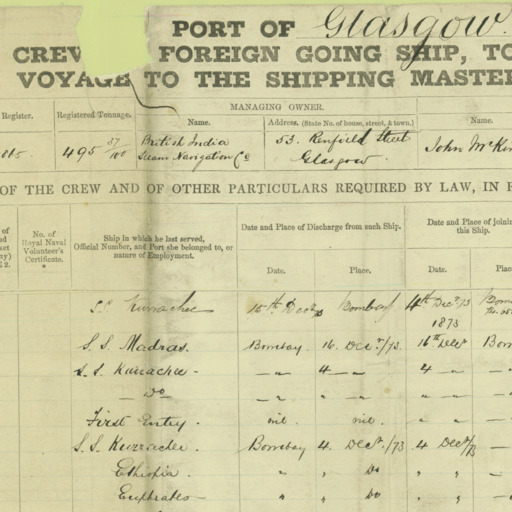 PORT OF Glasgow.
CREW FOREIGN GOING SHIP, TO
VOYAGE TO THE SHIPPING MASTE
Register.
Registered Tonnage.
MANAGING OWNER.
Name.
Address. (State No. of house, street, & town.)
Name.
495 57/100
British India
Steam Navigation Co
53. Renfield Street
Glasgow.
John McKin
OF THE CREW AND OF OTHER PARTICULARS REQUIRED BY LAW, IN
No. of Royal Naval Volunteer's Certificate. *
Ship in which he last served, Official Number, and Port she belonged to, or nature of Employment.
Date and Place of Discharge from each Ship.
Date and Place of joining this Ship.
Date. Place. Date. Place
S.S. Kurrachee 15th Decr 73 Bombay 4th Decr 73 Bom
1873
S. S. Madras. Bombay. 16. Decr/73. 16th Decr Bom
S. S. Kurrachee - — „ 4 — „ 4 „ —
— Do „ „ — „ „ „ —
First Entry. nil. nil. „ „ —
S. S. Kurrachee. Bombay 4. Decr/73 4 Decr/73 —
Ethiopia. „ „ Do „ „ —
Euphrates „ „ Do „ „ —